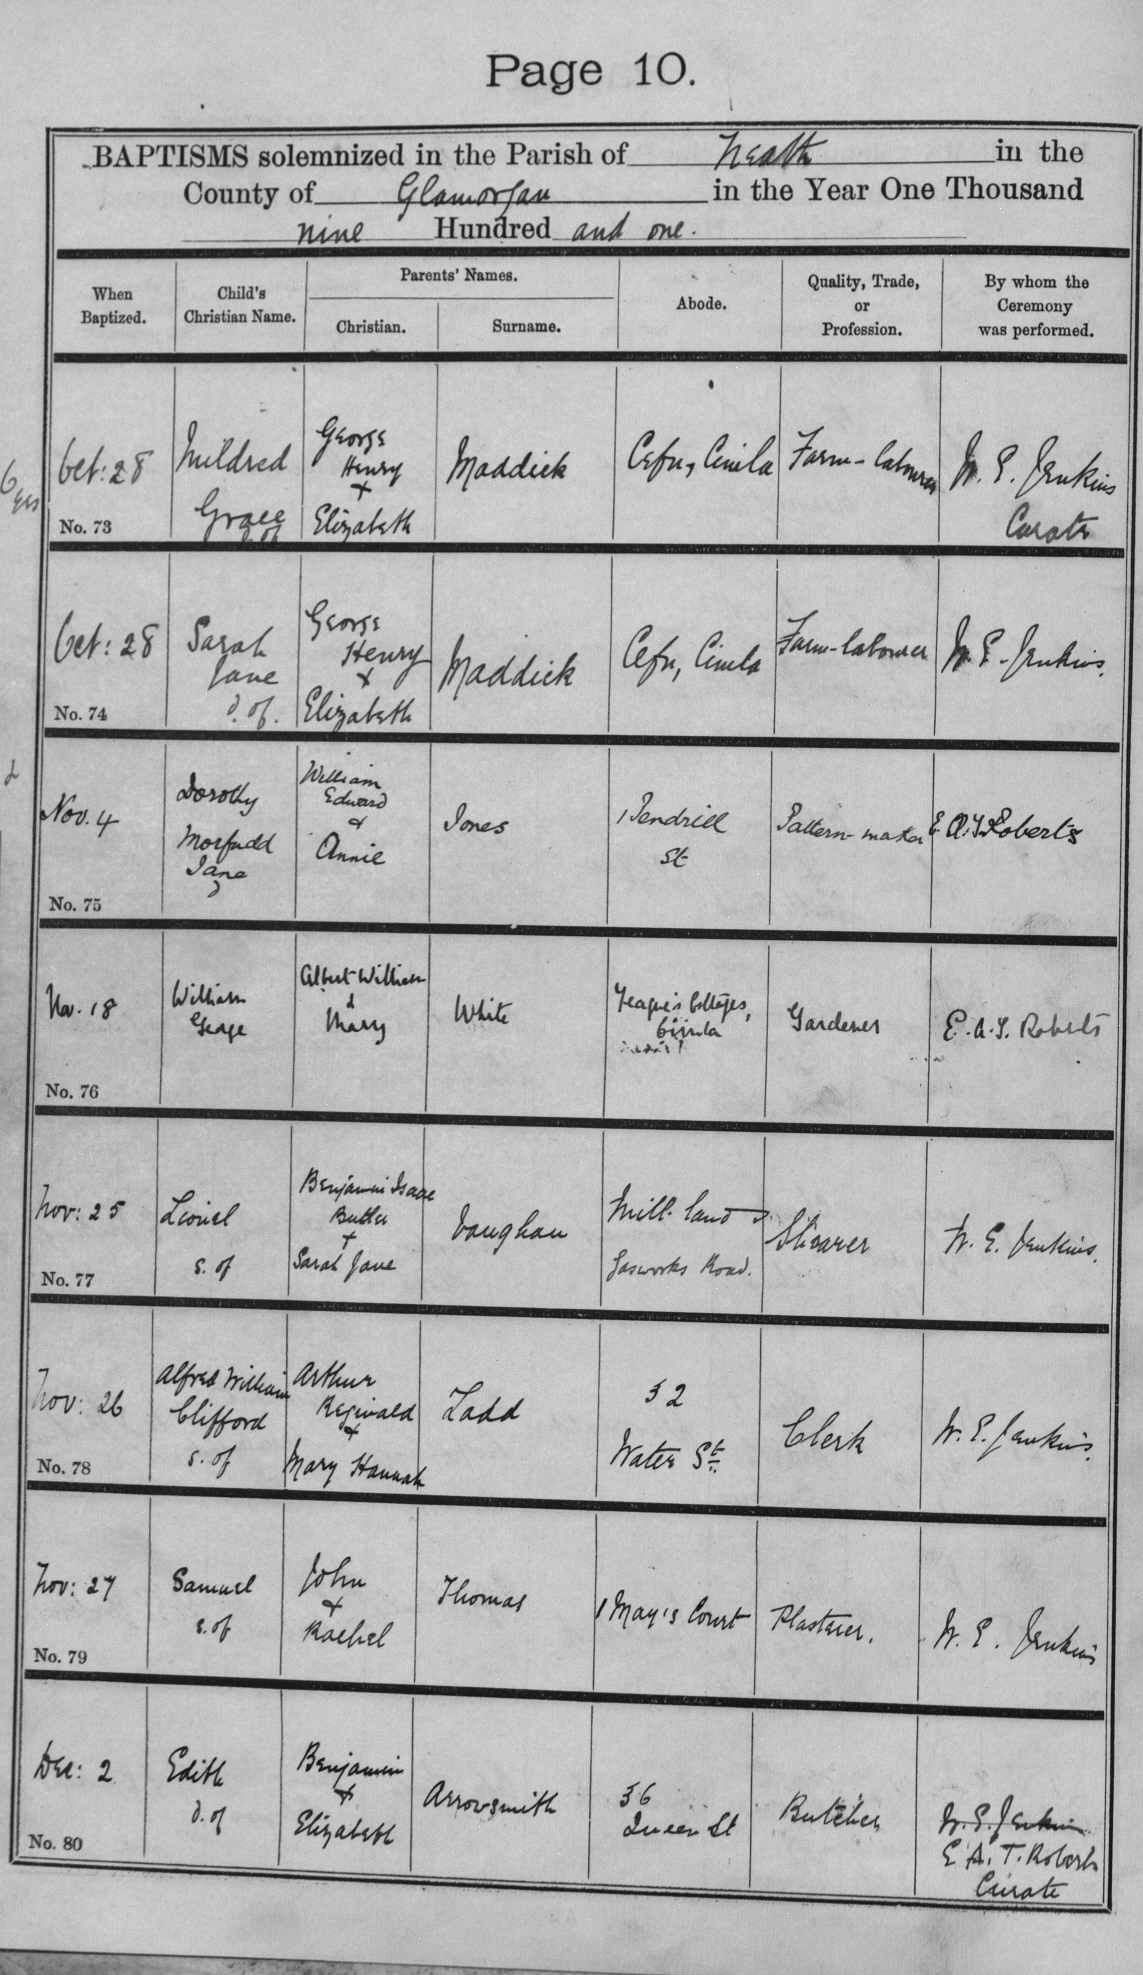 Page 10.
BAPTISMS solemnized in the Parish of Neath in the
County of Glamorgan in the Year One Thousand
nine Hundred and one.
When Baptized. Child's Christian Name. Parents' Names. Christian. Surname. Abode. Quality, Trade, or Profession. By whom the Ceremony was performed.
6 yrs
Oct: 28
No. 73
Mildred
Grace
d. of
George
Henry
+
Elizabeth
Maddick
Cefn, Cimla
Farm-labourer
W. E. Jenkins
Curate
Oct: 28
No. 74
Sarah
Jane
d. of.
George
Henry
+
Elizabeth
Maddick
Cefn, Cimla
Farm-labourer
W. E. Jenkins.
Nov. 4
No. 75
Dorothy
Morfudd
Jane
d
William
Edward
&
Annie
Jones
1 Pendrill
St
Pattern-maker
E. A. T. Roberts
Nov. 18
No. 76
William
George
Albert William
&
Mary
White
Teague's Cottages,
Cimla
Gardener
E. A. T. Roberts
Nov: 25
No. 77
Lionel
s. of
Benjamin Isaac
Butler
+
Sarah Jane
Vaughan
Mill-land
Gasworks Road.
Shearer
W. E. Jenkins.
Nov: 26
No. 78
Alfred William
Clifford
s. of
Arthur
Reginald
+
Mary Hannah
Ladd
52
Water St.
Clerk
W. E. Jenkins.
Nov: 27
No. 79
Samuel
s. of
John
+
Rachel
Thomas
1 May's Court
Plasterer.
W. E. Jenkins
Dec: 2
No. 80
Edith
d. of
Benjamin
+
Elizabeth
Arrowsmith
36
Queen St
Butcher
W. E. Jenkins
E. A. T. Roberts
Curate